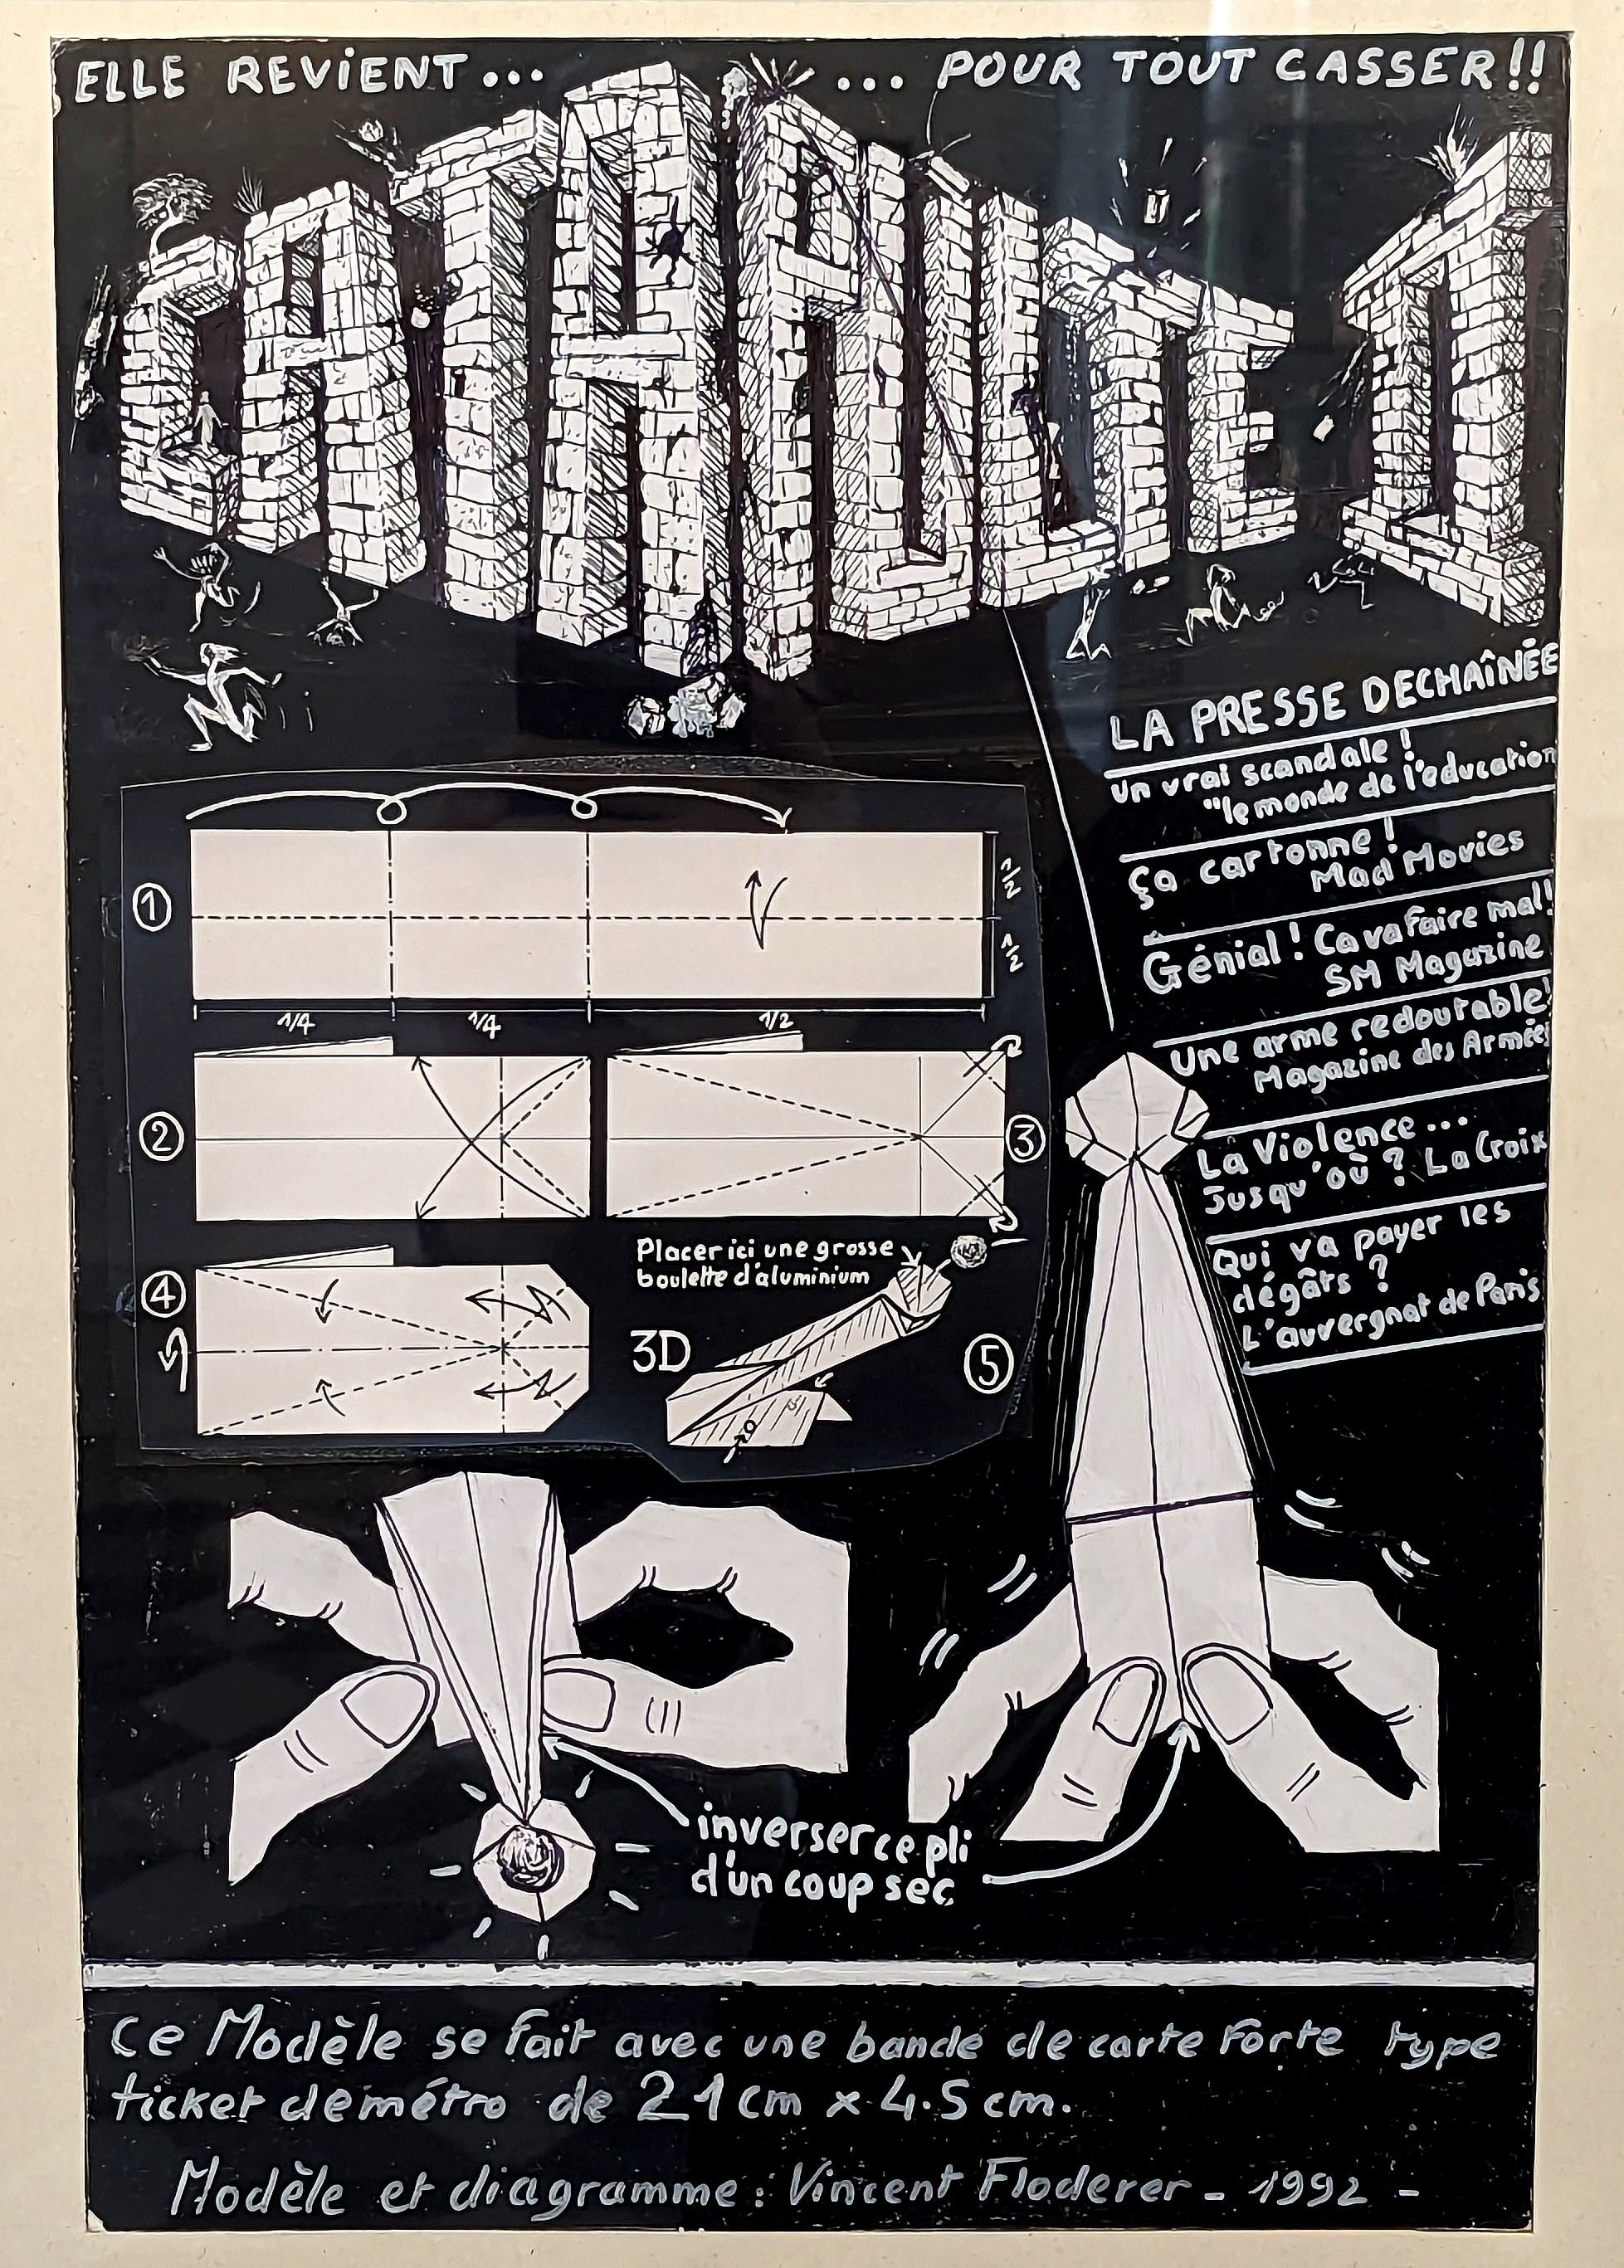 ELLE REVIENT...
... POUR TOUT CASSER!!
CATAPULTE I
LA PRESSE DECHAÎNÉE
un vrai scandale !
"le monde de l'education
Ça cartonne !
Mad Movies
Génial ! Ca va faire mal!
SM Magazine
Une arme redoutable!
Magazine des Armées
La Violence ...
Jusqu'où ? La Croix
Qui va payer les
dégâts ?
L'auvergnat de Paris
1
1/2
1/2
1/4
1/4
1/2
2
3
4
Placer ici une grosse
boulette d'aluminium
3D
5
inverser ce pli
d'un coup sec
Ce Modèle se fait avec une bande de carte forte type
ticket de métro de 21 cm x 4.5 cm.
Modèle et diagramme : Vincent Floderer - 1992 -